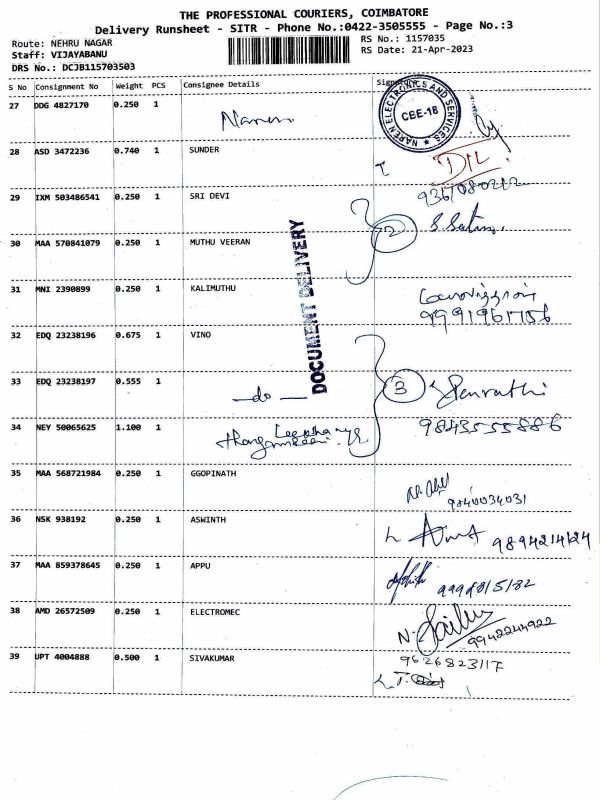 THE PROFESSIONAL COURIERS, COIMBATORE
Delivery Runsheet - SITR - Phone No.:0422-3505555 - Page No.:3
Route: NEHRU NAGAR
RS No.: 1157035
Staff: VIJAYABANU
RS Date: 21-Apr-2023
DRS No.: DCJB115703503
S No Consignment No Weight PCS Consignee Details Signature
27 DDG 4827170 0.250 1 Naren
NAREN ELECTRONICS AND SERVICES
CBE-18
28 ASD 3472236 0.740 1 SUNDER
29 IXM 503486541 0.250 1 SRI DEVI
30 MAA 570841079 0.250 1 MUTHU VEERAN
2
DOCUMENT DELIVERY
31 MNI 2390899 0.250 1 KALIMUTHU
9991961756
32 EDQ 23238196 0.675 1 VINO
33 EDQ 23238197 0.555 1 —do—
3
34 NEY 50065625 1.100 1
9843555886
35 MAA 568721984 0.250 1 GGOPINATH
9840034031
36 NSK 938192 0.250 1 ASWINTH
9894214124
37 MAA 859378645 0.250 1 APPU
38 AMD 26572509 0.250 1 ELECTROMEC
9942244922
39 UPT 4004888 0.500 1 SIVAKUMAR
9626823117